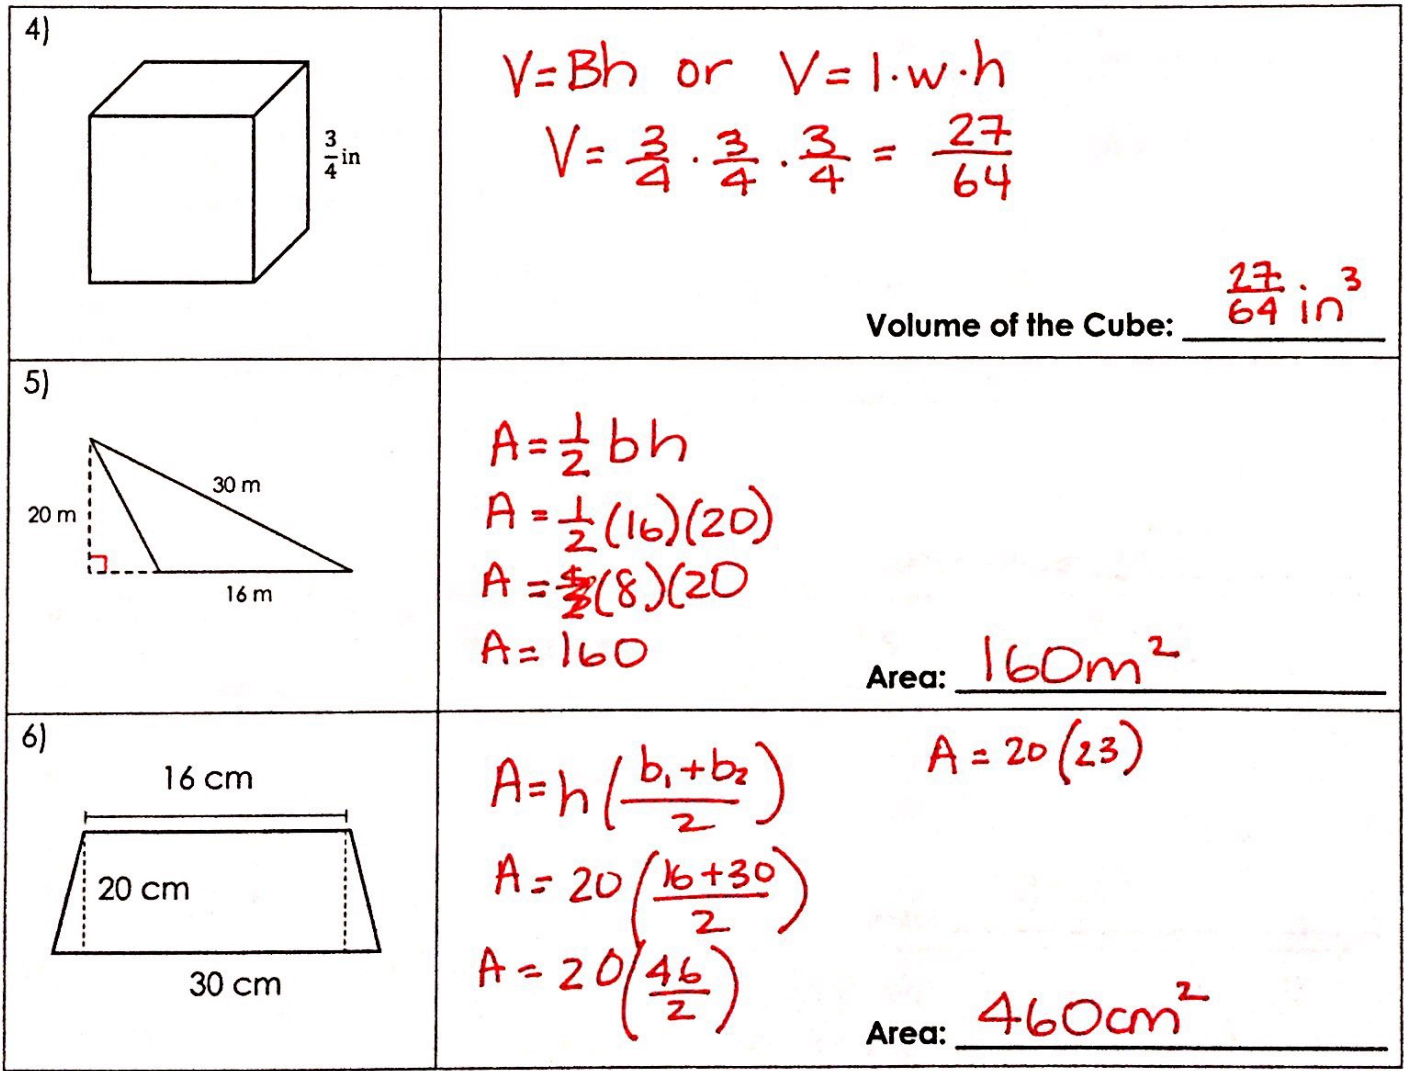 4)
3/4 in
V=Bh or V=l·w·h
V= 3/4 · 3/4 · 3/4 = 27/64
Volume of the Cube: 27/64 in³
5)
30 m
20 m
16 m
A=1/2 bh
A=1/2(16)(20)
A=(8)(20
A=160
Area: 160m²
6)
16 cm
20 cm
30 cm
A=h((b₁+b₂)/2)
A=20((16+30)/2)
A=20(46/2)
A=20(23)
Area: 460cm²